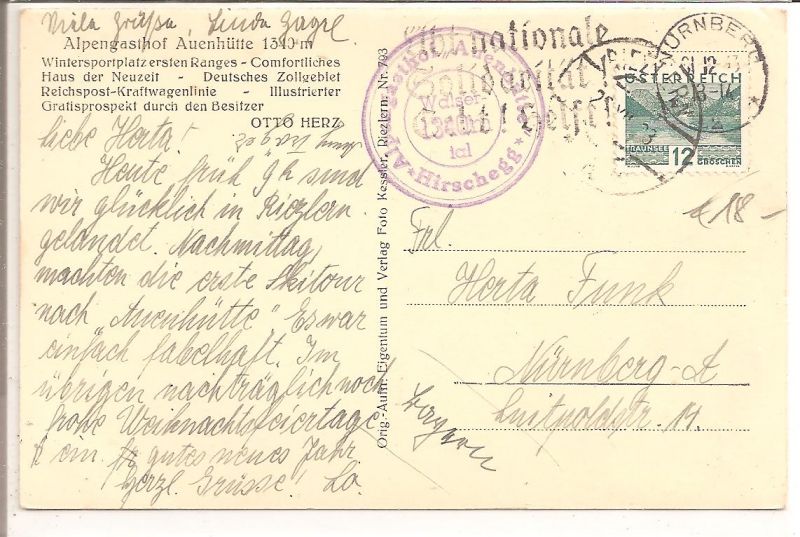 Viele Grüße, Linda
Alpengasthof Auenhütte 1340 m
Wintersportplatz ersten Ranges - Comfortliches
Haus der Neuzeit - Deutsches Zollgebiet
Reichspost-Kraftwagenlinie - Illustrierter
Gratisprospekt durch den Besitzer
OTTO HERZ
liebe Herta!
Heute früh 9h sind
wir glücklich in Riezlern
gelandet. Nachmittag
machten die erste Skitour
nach „Auenhütte" Es war
einfach fabelhaft. Im
übrigen nachträglich noch
frohe Weihnachtsfeiertage
& ein gutes neues Jahr
Herzl. Grüsse Lo.
Orig.-Aufn. Eigentum und Verlag Foto Kessler, Riezlern. Nr. 793
Alpengasthof Auenhütte
Walser
tal
Hirschegg
nationale
Solidarität
NÜRNBERG
ÖSTERREICH
TRAUNSEE 12 GROSCHEN
€ 18 -
Frl.
Herta Funk
Nürnberg-A
Luitpoldstr.
Bayern